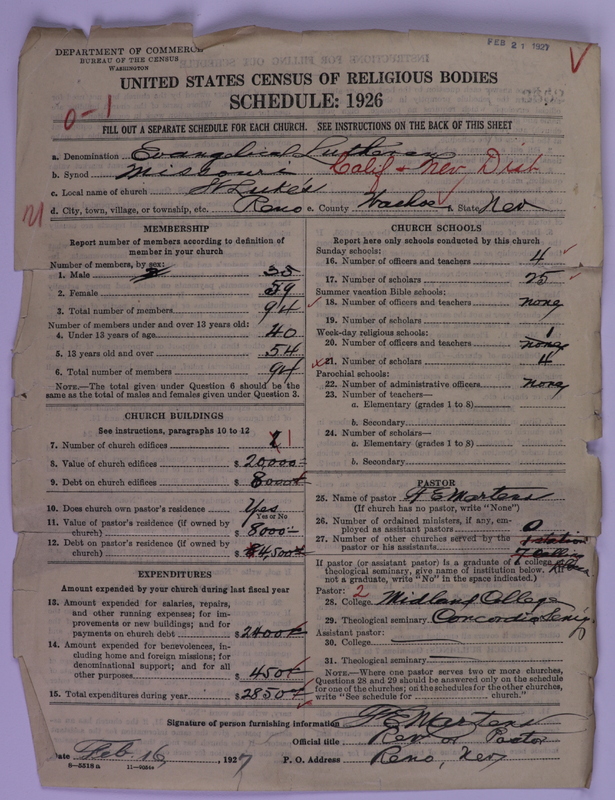 DEPARTMENT OF COMMERCE
BUREAU OF THE CENSUS
WASHINGTON
FEB 21 1927
UNITED STATES CENSUS OF RELIGIOUS BODIES
SCHEDULE: 1926
0-1
FILL OUT A SEPARATE SCHEDULE FOR EACH CHURCH. SEE INSTRUCTIONS ON THE BACK OF THIS SHEET
a. Denomination Evangelical Lutheran
b. Synod Missouri Calif + Nev Dist
c. Local name of church St Luke's
d. City, town, village, or township, etc. Reno e. County Washoe f. State Nev
MEMBERSHIP
Report number of members according to definition of
member in your church
Number of members, by sex:
1. Male 35
2. Female 59
3. Total number of members 94
Number of members under and over 13 years old:
4. Under 13 years of age 40
5. 13 years old and over 54
6. Total number of members 94
NOTE.—The total given under Question 6 should be the
same as the total of males and females given under Question 3.
CHURCH BUILDINGS
See instructions, paragraphs 10 to 12
7. Number of church edifices 1
8. Value of church edifices $ 20,000
9. Debt on church edifices $ 8000
10. Does church own pastor's residence Yes
Yes or No
11. Value of pastor's residence (if owned by
church) $ 8000
12. Debt on pastor's residence (if owned by
church) $ 4,500
EXPENDITURES
Amount expended by your church during last fiscal year
13. Amount expended for salaries, repairs,
and other running expenses; for im-
provements or new buildings; and for
payments on church debt $ 2400
14. Amount expended for benevolences, in-
cluding home and foreign missions; for
denominational support; and for all
other purposes $ 450
15. Total expenditures during year $ 2850
CHURCH SCHOOLS
Report here only schools conducted by this church
Sunday schools:
16. Number of officers and teachers 4
17. Number of scholars 25
Summer vacation Bible schools:
18. Number of officers and teachers none
19. Number of scholars
Week-day religious schools:
1
20. Number of officers and teachers none
21. Number of scholars 4
Parochial schools:
22. Number of administrative officers none
23. Number of teachers—
a. Elementary (grades 1 to 8)
b. Secondary
24. Number of scholars—
a. Elementary (grades 1 to 8)
b. Secondary
PASTOR
25. Name of pastor F E Martens
(If church has no pastor, write "None")
26. Number of ordained ministers, if any, em-
ployed as assistant pastors 0
27. Number of other churches served by the 1 station
pastor or his assistants
If pastor (or assistant pastor) is a graduate of a college or
theological seminary, give name of institution below. (If
not a graduate, write "No" in the space indicated.)
Pastor: 2
28. College Midland College
29. Theological seminary Concordia
Assistant pastor:
30. College
31. Theological seminary
NOTE.—Where one pastor serves two or more churches,
Questions 28 and 29 should be answered only on the schedule
for one of the churches; on the schedules for the other churches,
write "See schedule for ........ church."
Signature of person furnishing information F E Martens
Official title Rev or Pastor
Date Feb 16, 1927 P. O. Address Reno, Nev
8—5518a 11—9054